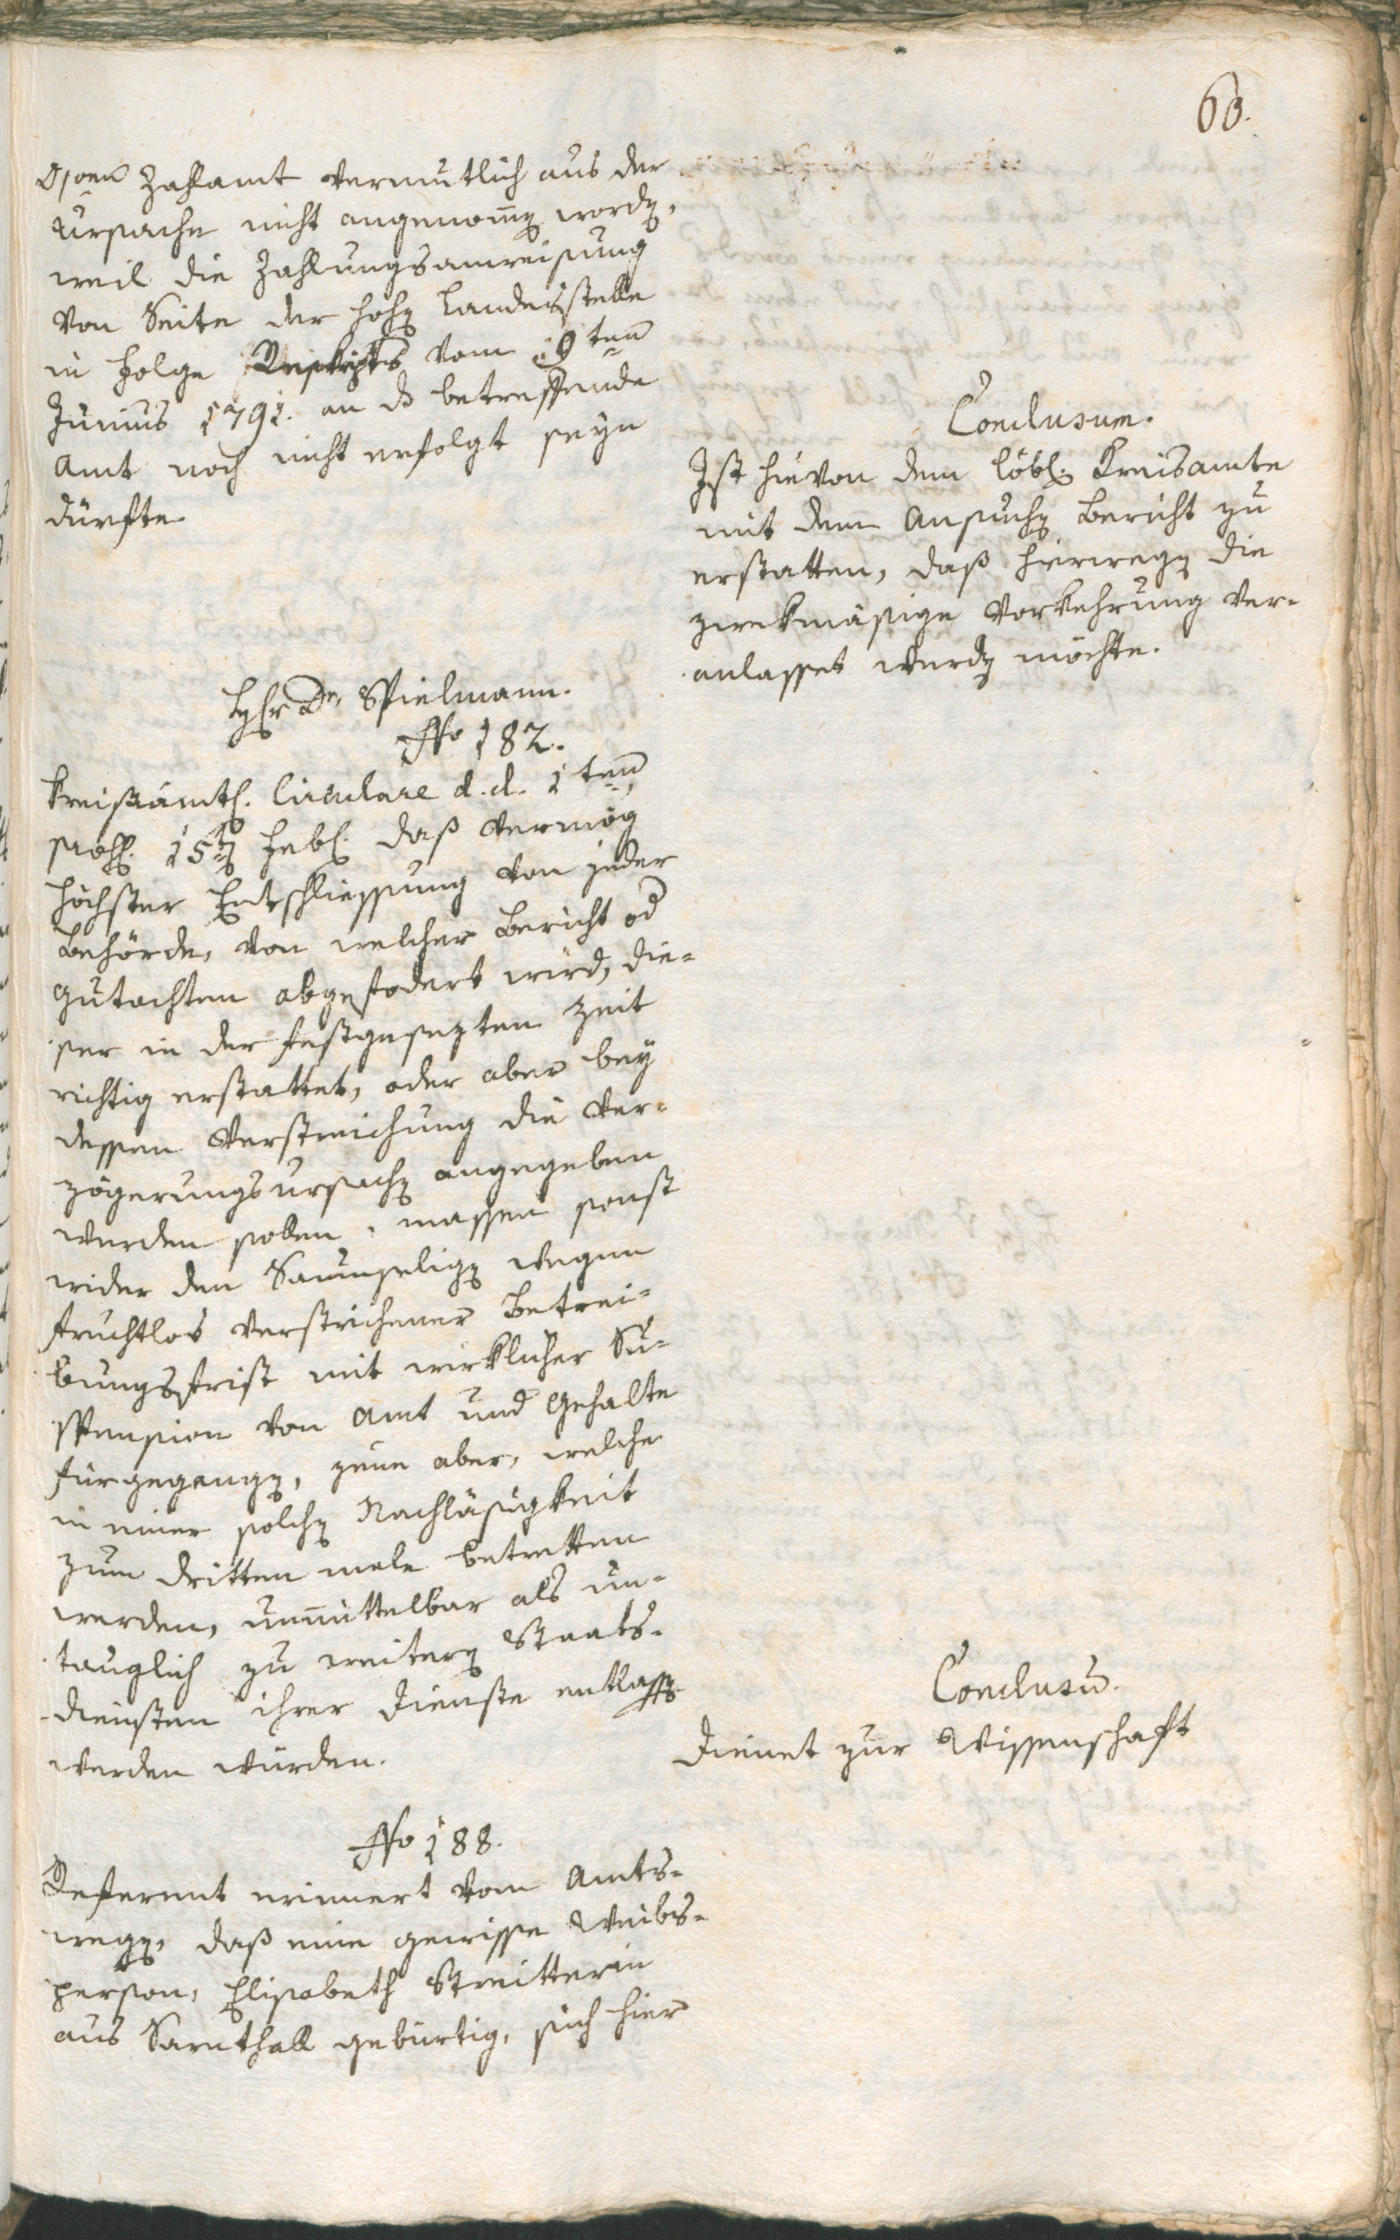 63.
Zahlamt vermutlich aus der
Ursache nicht angenom̅en worden,
weil die Zahlungsanweisung
von Seite der hohen Landesstelle
in Folge Reskripts vom 19ten
Junius 1791. an das betreffende
Amt noch nicht erfolgt seyn
dürfte.
Conclusum.
Ist hievon dem löbl. Kreisamte
mit dem Ansuchen Bericht zu
erstatten, daß hierwegen die
zwekmäsige Vorkehrung ver-
anlasset werden möchte.
Hr Dr Spielmann.
No 182.
Kreisämtl. Circulare d. d. 1ten,
15ten Febl. daß vermög
höchster Entschliessung von jeder
Behörde, von welcher Bericht od
Gutachten abgefodert wird, die-
ser in der festgesezten Zeit
richtig erstattet, oder aber bey
dessen Verstreichung die Ver-
zögerungsursachen angegeben
werden sollen, massen sonst
wider den Saumseligen wegen
fruchtlos verstrichener Betrei-
bungsfrist mit wirklicher Su-
spension von Amt und Gehalte
fürgegangen, jene aber, welche
in einer solchen Nachläsigkeit
zum dritten male betretten
werden, unmittelbar als un-
tauglich zu weitern Staats-
diensten ihrer Dienste entlassen
werden würden.
Conclusū.
Dienet zur Wissenschaft
No 188.
Referent erinnert vom Amts-
wegen, daß eine gewisse Weibs-
person, Elisabeth Streitterin
aus Sarnthall gebürtig, sich hier